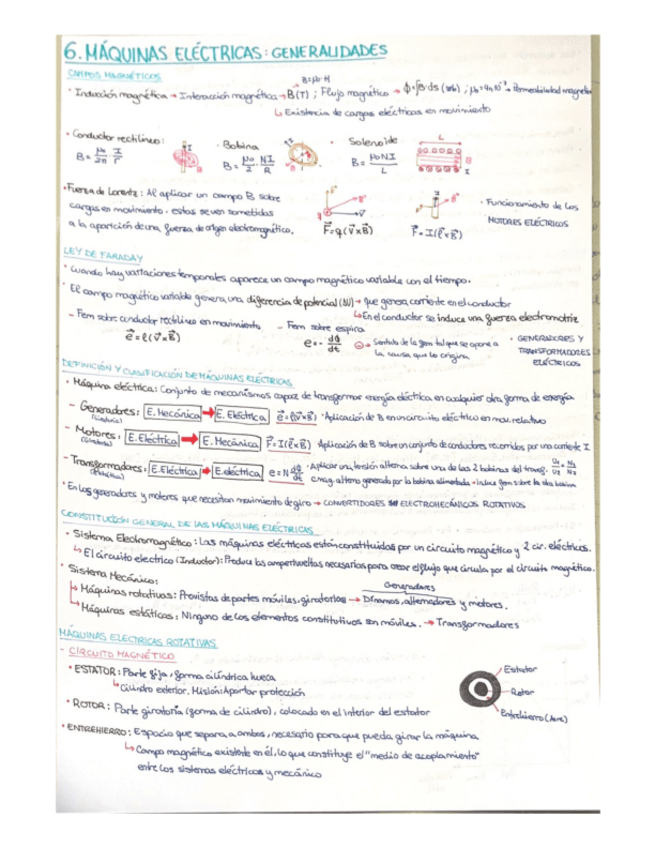 6. MÁQUINAS ELÉCTRICAS: GENERALIDADES
CAMPOS MAGNÉTICOS
B=μ0·H
· Inducción magnética → Interacción magnética → B(T) ; Flujo magnético → ϕ=∫B·ds (wb) ; μ0=4π10⁻⁷ → Permeabilidad magnética
↳ Existencia de cargas eléctricas en movimiento
· Conductor rectilíneo: B = μ0/2π · I/r
· Bobina B = μ0/2 · NI/R
· Solenoide B = μ0NI/L
· Fuerza de Lorentz: Al aplicar un campo B sobre
cargas en movimiento, estas se ven sometidas
a la aparición de una fuerza de origen electromagnético.
F⃗=q(v⃗×B⃗)
F⃗=I(ℓ⃗×B⃗)
· Funcionamiento de los
MOTORES ELÉCTRICOS
LEY DE FARADAY
· Cuando hay variaciones temporales aparece un campo magnético variable con el tiempo.
· El campo magnético variable genera una diferencia de potencial (ΔU) → que genera corriente en el conductor
↳ En el conductor se induce una fuerza electromotriz
– Fem sobre conductor rectilíneo en movimiento
e⃗ = ℓ(v⃗×B⃗)
– Fem sobre espira
e = - dϕ/dt
⊖→ Sentido de la fem tal que se opone a
la causa que lo origina
· GENERADORES Y
TRANSFORMADORES
ELÉCTRICOS
DEFINICIÓN Y CLASIFICACIÓN DE MÁQUINAS ELÉCTRICAS
· Máquina eléctrica: Conjunto de mecanismos capaz de transformar energía eléctrica en cualquier otra forma de energía
– Generadores: E. Mecánica → E. Eléctrica e⃗=ℓ(v⃗×B⃗) · Aplicación de B en un circuito eléctrico en mov. relativo
– Motores: E. Eléctrica → E. Mecánica F⃗=I(ℓ⃗×B⃗) Aplicación de B sobre un conjunto de conductores recorridos por una corriente I
– Transformadores: E. Eléctrica → E. eléctrica e=N dϕ/dt · Aplicar una tensión alterna sobre una de las 2 bobinas del transf. U1/U2 = N1/N2
c.mag. alterno generado por la bobina alimentada → induce fem sobre la otra bobina
· En los generadores y motores que necesitan movimiento de giro → CONVERTIDORES ELECTROMECÁNICOS ROTATIVOS
CONSTITUCIÓN GENERAL DE LAS MÁQUINAS ELÉCTRICAS
· Sistema Electromagnético: Las máquinas eléctricas están constituidas por un circuito magnético y 2 cir. eléctricos.
↳ El circuito eléctrico (Inductor): Produce los ampervueltas necesarios para crear el flujo que circula por el circuito magnético.
· Sistema Mecánico:
Generadores
↳ Máquinas rotativas: Provistas de partes móviles, giratorios → Dínamos, alternadores y motores.
↳ Máquinas estáticas: Ninguno de los elementos constitutivos son móviles. → Transformadores
MÁQUINAS ELÉCTRICAS ROTATIVAS
– CIRCUITO MAGNÉTICO
· ESTATOR: Parte fija, forma cilíndrica hueca
↳ Cilindro exterior. Misión: Aportar protección
· ROTOR: Parte giratoria (forma de cilindro), colocado en el interior del estator
· ENTREHIERRO: Espacio que separa a ambos, necesario para que pueda girar la máquina
↳ Campo magnético existente en él, lo que constituye el "medio de acoplamiento"
entre los sistemas eléctricos y mecánico
Estator
Rotor
Entrehierro (Aire)